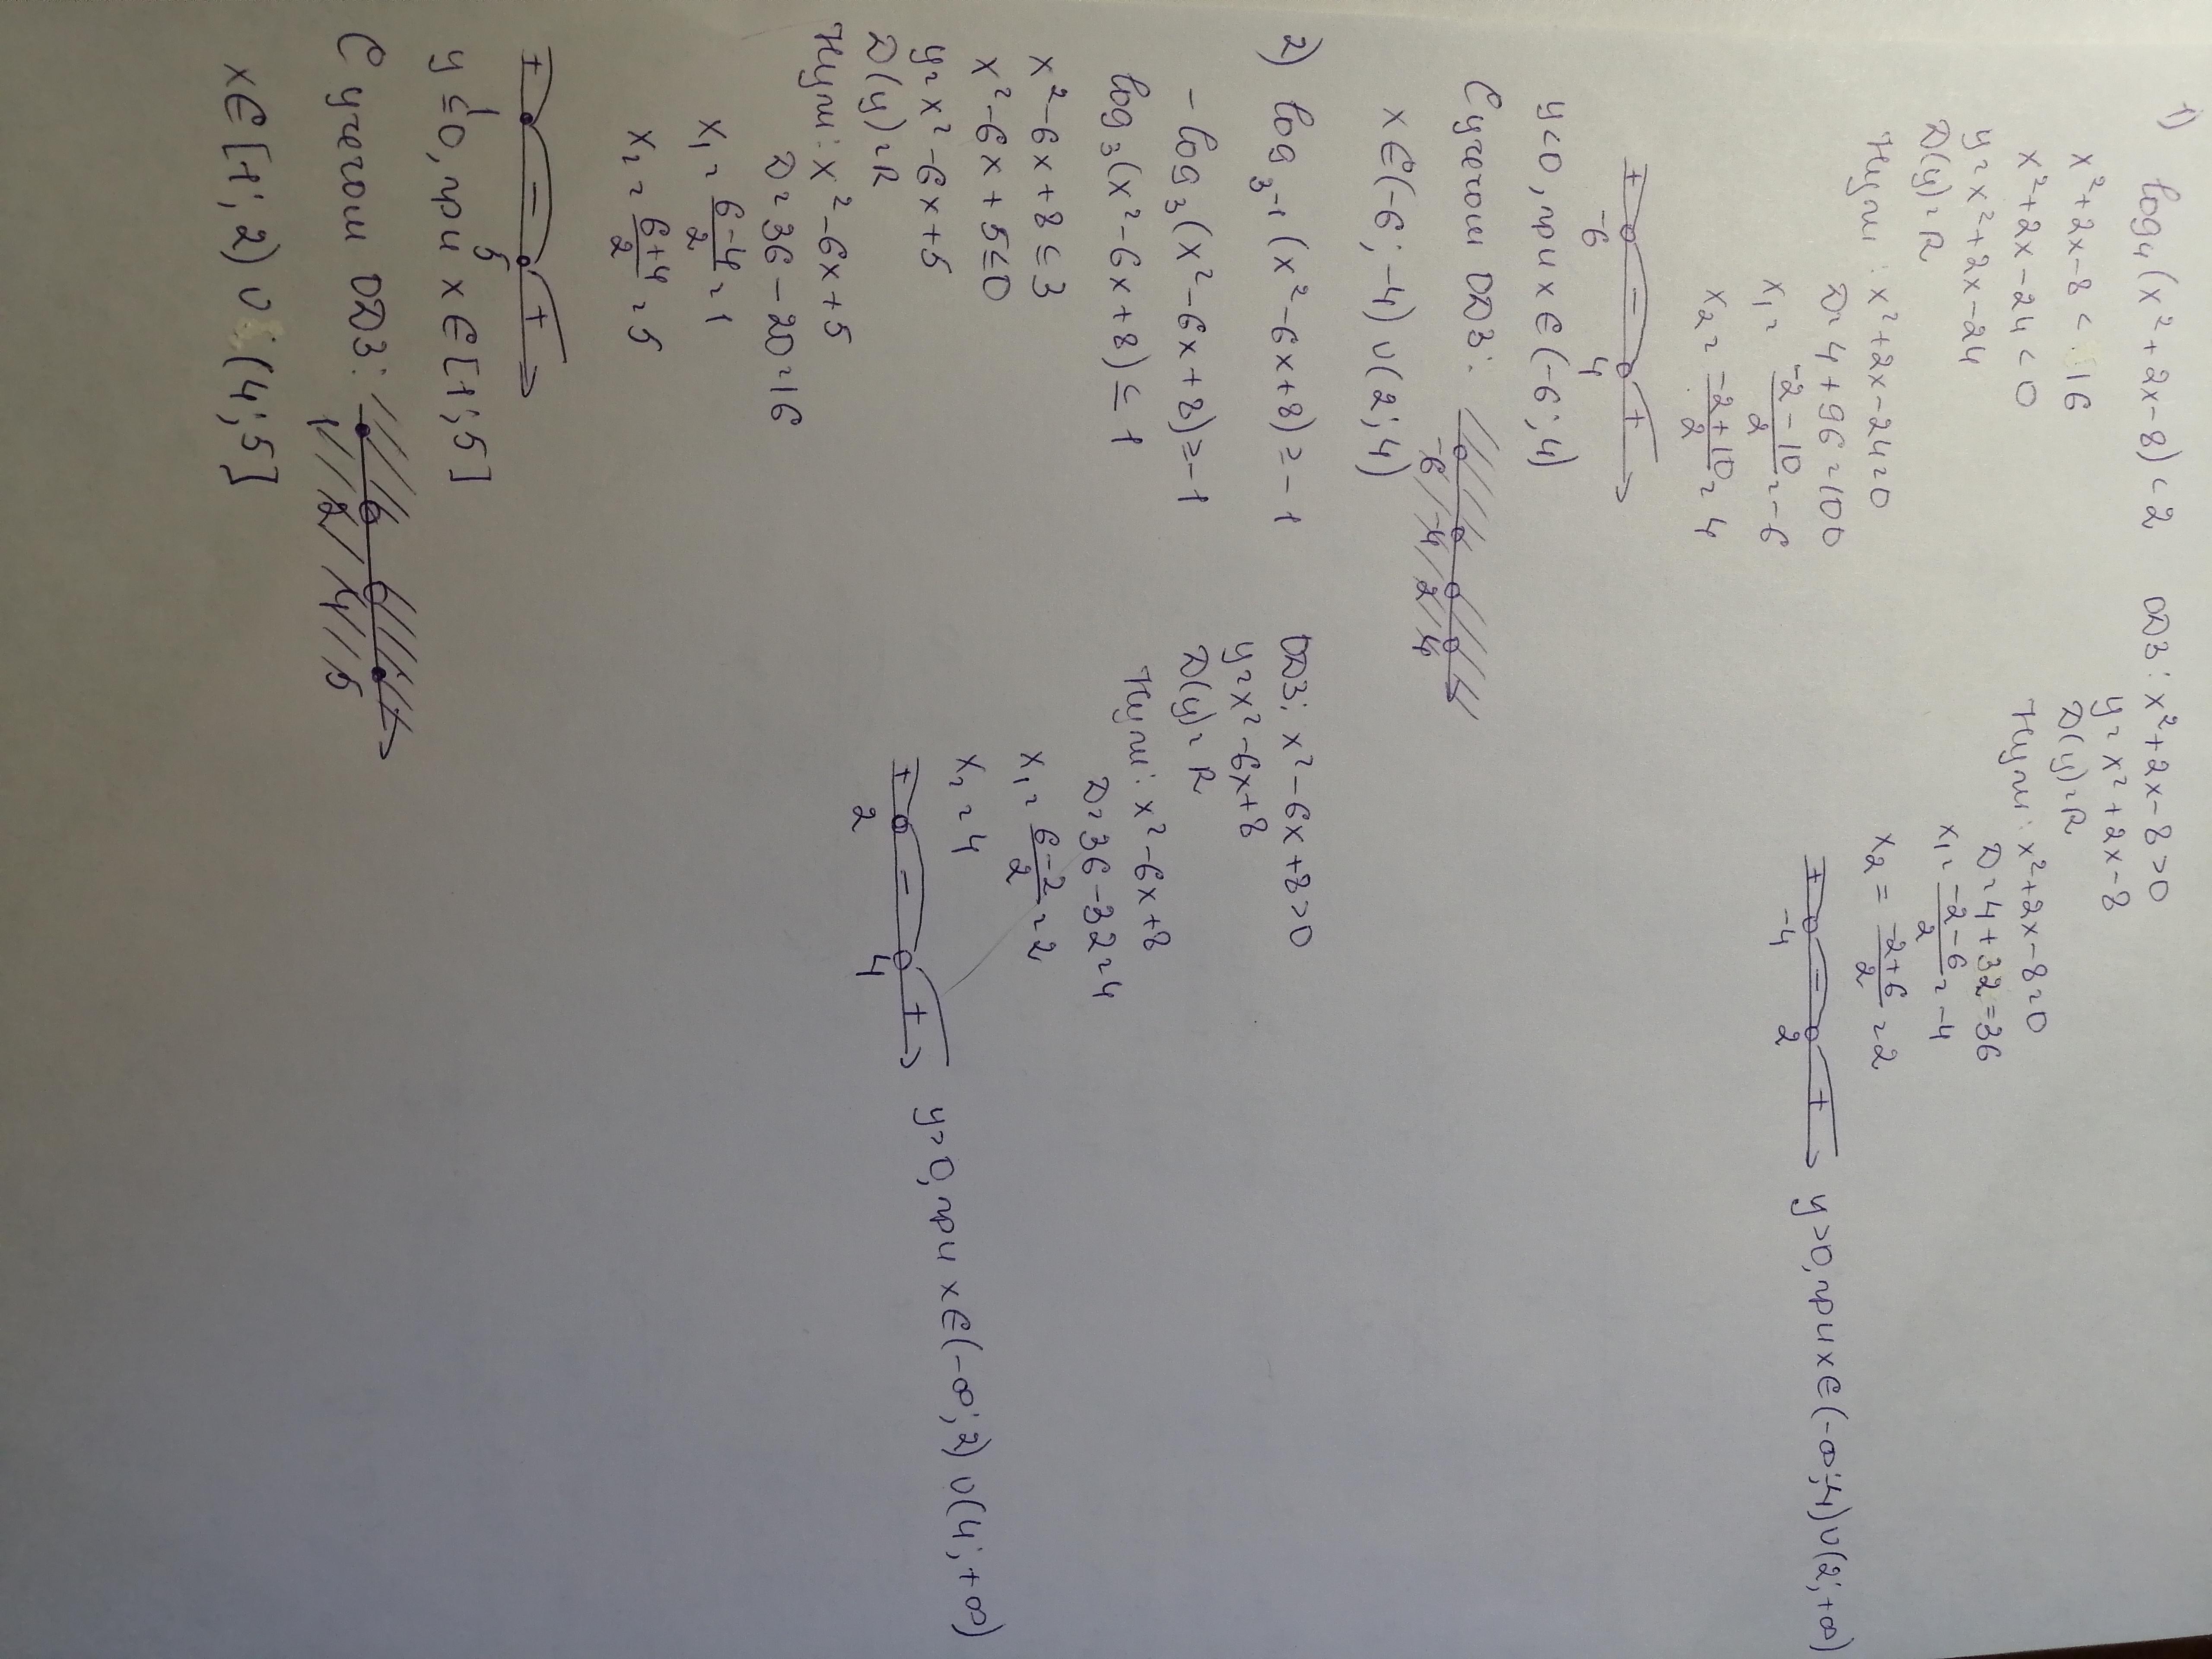 1) log₄(x²+2x-8)<2
x²+2x-8<16
x²+2x-24<0
y=x²+2x-24
D(y)=R
Нули: x²+2x-24=0
D=4+96=100
x₁=(-2-10)/2=-6
x₂=(-2+10)/2=4
+ - +
-6 4
y<0, при x∈(-6;4)
С учетом ОДЗ:
-6 -4 2 4
x∈(-6;-4)∪(2;4)
ОДЗ: x²+2x-8>0
y=x²+2x-8
D(y)=R
Нули: x²+2x-8=0
D=4+32=36
x₁=(-2-6)/2=-4
x₂=(-2+6)/2=2
+ - +
-4 2
y>0, при x∈(-∞;-4)∪(2;+∞)
2) log₃-₁(x²-6x+8)≥-1
-log₃(x²-6x+8)≥-1
log₃(x²-6x+8)≤1
x²-6x+8≤3
x²-6x+5≤0
y=x²-6x+5
D(y)=R
Нули: x²-6x+5
D=36-20=16
x₁=(6-4)/2=1
x₂=(6+4)/2=5
+ - +
1 5
y≤0, при x∈[1;5]
С учетом ОДЗ:
1 2 4 5
x∈[1;2)∪(4;5]
ОДЗ: x²-6x+8>0
y=x²-6x+8
D(y)=R
Нули: x²-6x+8
D=36-32=4
x₁=(6-2)/2=2
x₂=4
+ - +
2 4
y>0, при x∈(-∞;2)∪(4;+∞)